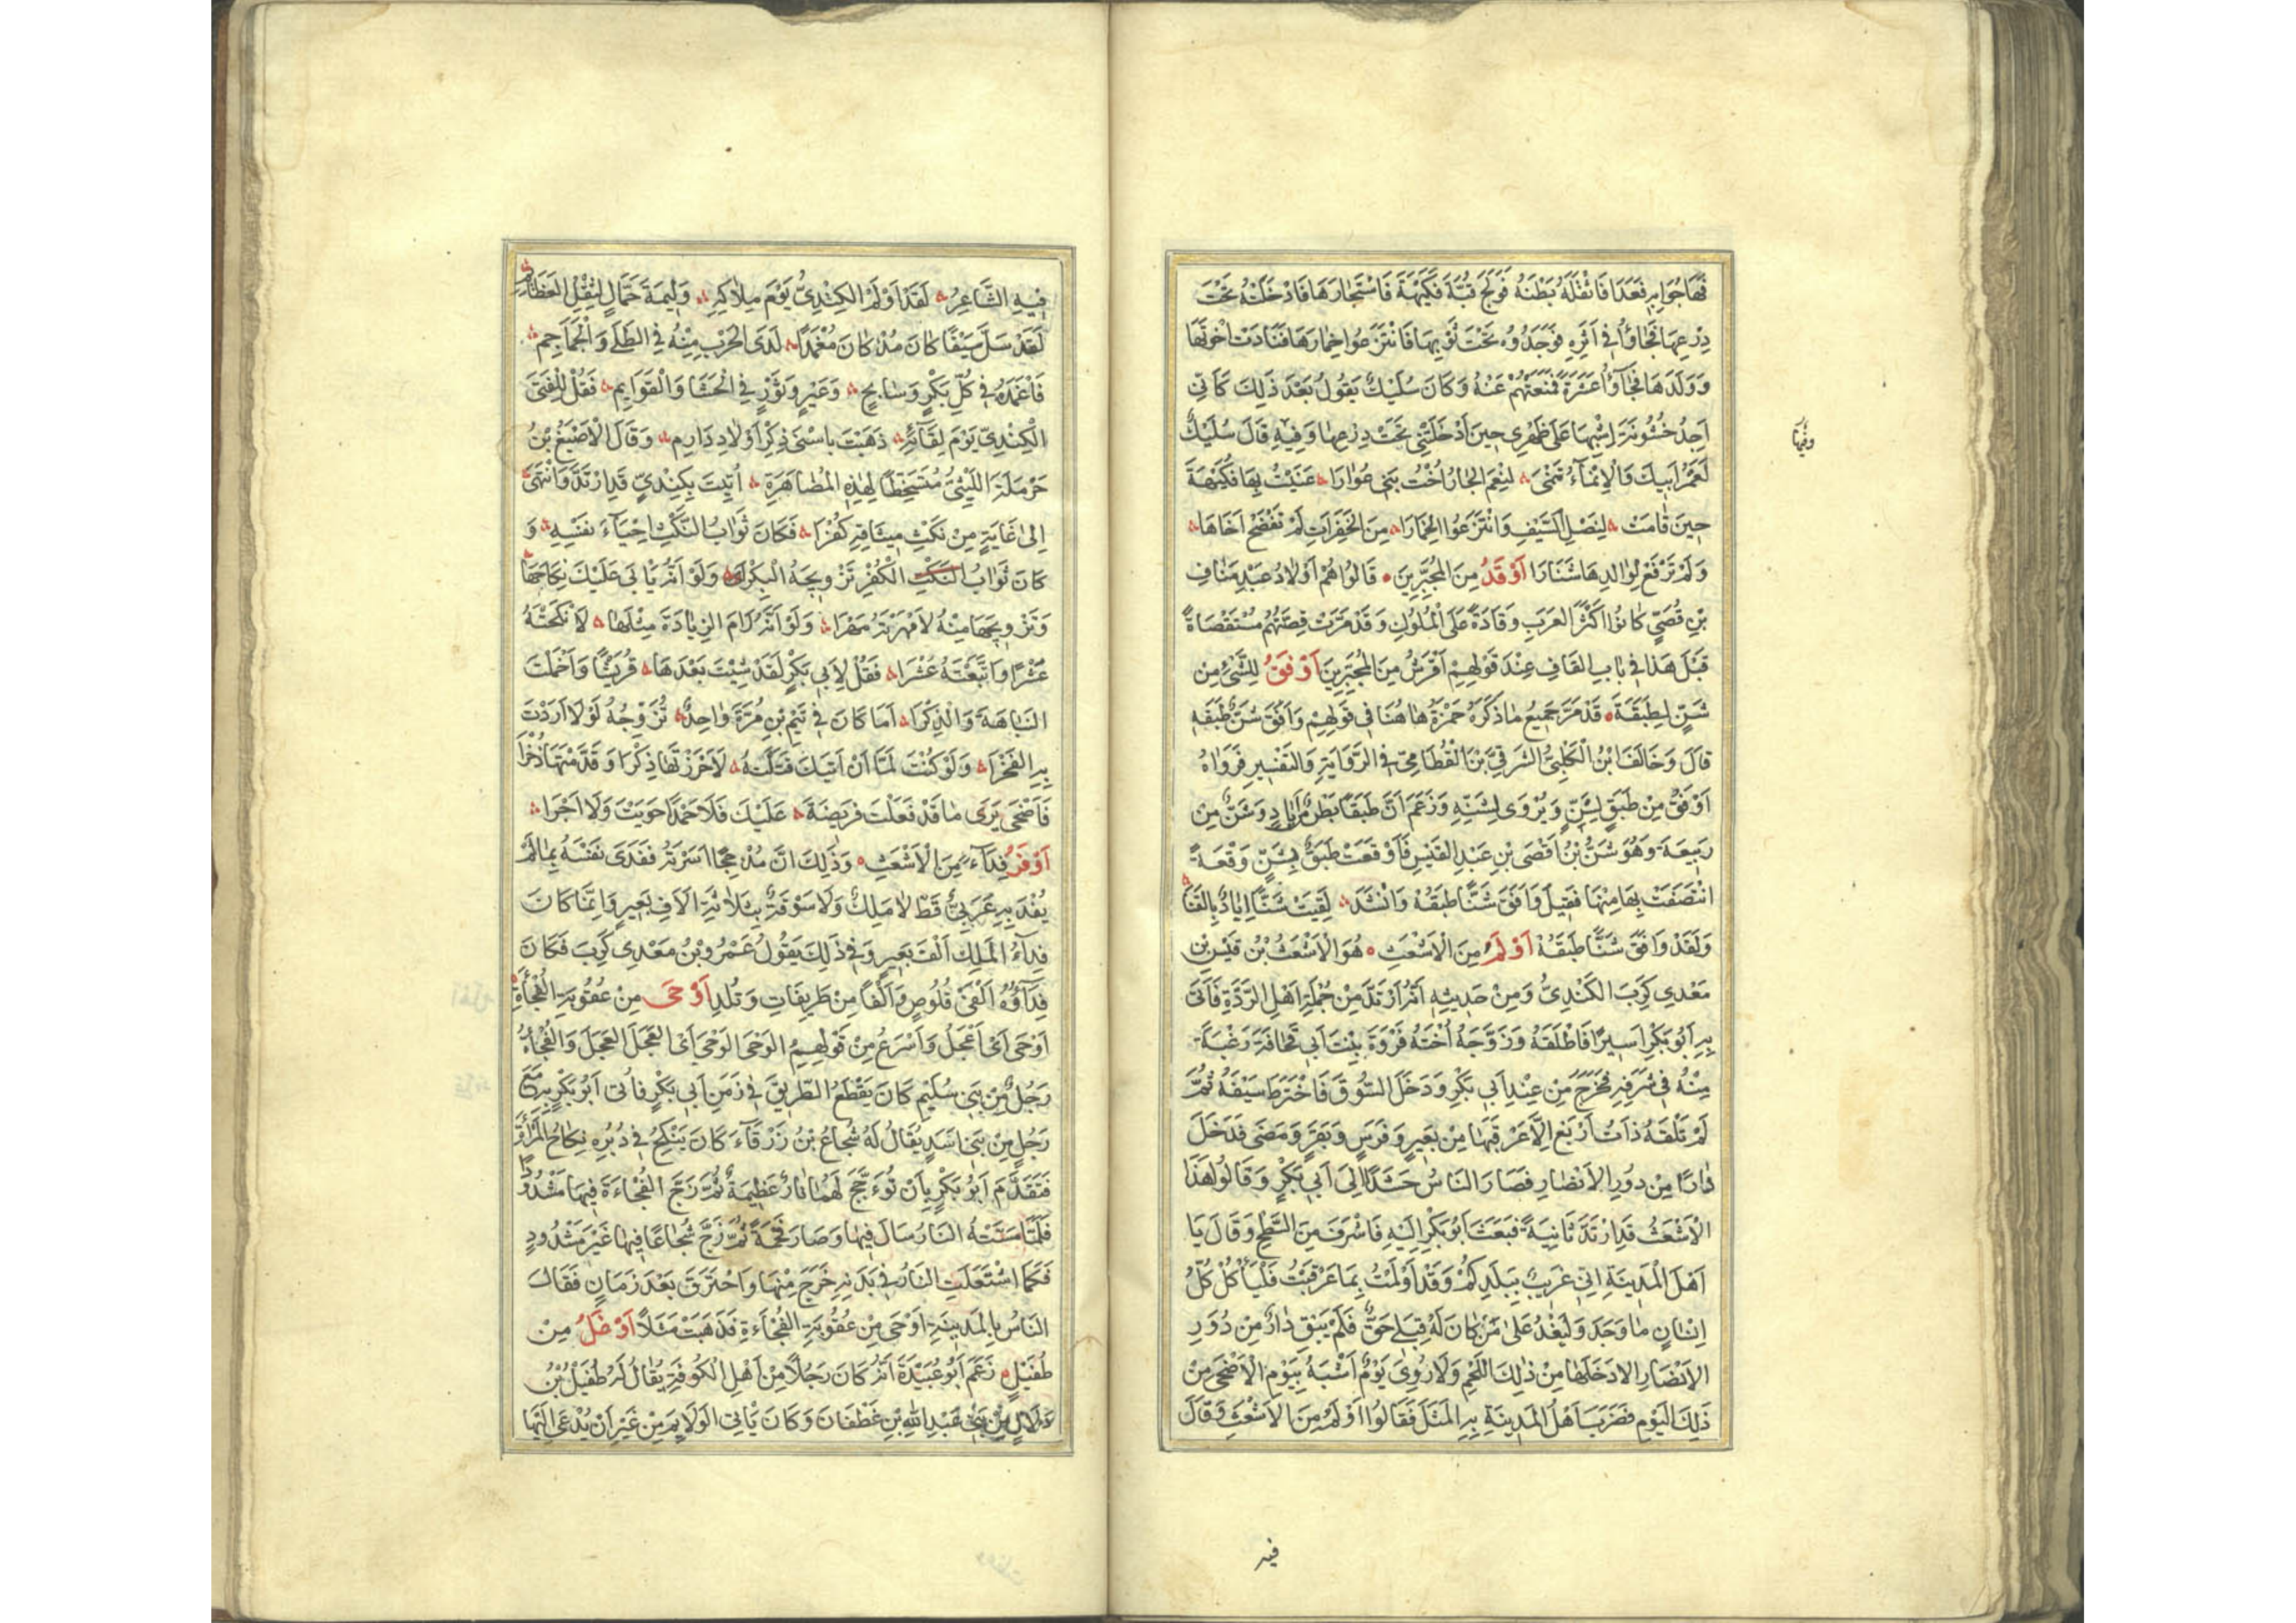 فَهَاجُوا بِهِ فَعَدَا فَاَثْقَلَهُ بَطْنُهُ فَوَلَجَ قُبَّةَ فَكِيْهَةَ فَاسْتَجَارَهَا فَادْخَلَتْهُ تَحْتَ
دِرْعِهَا فَجَاؤُا فِي اَثَرِهِ فَوَجَدُوهُ تَحْتَ ثَوْبِهَا فَانْتَزَعُوا خِمَارَهَا فَنَادَتْ اِخْوَتَهَا
وَوَلَدَهَا فَجَاؤُا عَشَرَةً فَمَنَعَتْهُمْ عَنْهُ وَكَانَ سُلَيْكٌ يَقُولُ بَعْدَ ذَلِكَ كَاَنِّى
اَجِدُ خُشُونَةَ اِسْبِهَا عَلَى ظَهْرِى حِينَ اَدْخَلَتْنِى تَحْتَ دِرْعِهَا وَفِيْهِ قَالَ سُلَيْكٌ
لَعَمْرُ اَبِيكَ وَالْاِنْمَاءُ تَنْمَى لَنِعْمَ الْجَارُ اُخْتُ بَنِى عُوَارَا عَنَيْتُ بِهَا فَكِيْهَةَ
حِينَ قَامَتْ لِنَصْلِ السَّيْفِ وَانْتَزَعُوا الْخِمَارَا مِنَ الْخَفِرَاتِ لَمْ تَفْضَحْ اَخَاهَا
وَلَمْ تَرْفَعْ لِوَالِدِهَا شَنَارَا اَوْفَدُ مِنَ الْمُجَبِّرِيْنَ قَالُوا هُمْ اَوْلَادُ عَبْدِ مَنَافِ
بْنِ قُصَىٍّ كَانُوا اَكْثَرَ الْعَرَبِ وَفَادَةً عَلَى الْمُلُوكِ وَقَدْ مَرَّتْ قِصَّتُهُمْ مُسْتَقْصَاةً
قَبْلَ هَذَا فِي بَابِ الْقَافِ عِنْدَ قَوْلِهِمْ اَقْرَشُ مِنَ الْمُجَبِّرِيْنَ اَوْفَقُ لِلشَّىْءِ مِنْ
شَنٍّ لِطَبَقَةَ قَدْ مَرَّ جَمِيعُ مَا ذَكَرَهُ حَمْزَةُ هَاهُنَا فِي قَوْلِهِمْ وَافَقَ شَنٌّ طَبَقَهْ
قَالَ وَخَالَفَ ابْنُ الْكَلْبِىِّ الشَّرَقِىَّ بْنَ الْقُطَامِىِّ فِي الرِّوَايَةِ وَالتَّفْسِيرِ فَرَوَاهُ
اَوْفَقُ مِنْ طَبَقٍ لِشَنٍّ وَيُرْوَى لِشَنِّهِ وَزَعَمَ اَنَّ طَبَقًا بَطْنٌ مِنْ اِيَادٍ وَشَنٌّ مِنْ
رَبِيعَةَ وَهُوَ شَنُّ بْنُ اَفْصَى بْنِ عَبْدِ الْقَيْسِ فَاَوْقَعَتْ طَبَقُ بِشَنٍّ وَقْعَةً
انْتَصَفَتْ بِهَا مِنْهَا فَقِيلَ وَافَقَ شَنًّا طَبَقُهْ وَانْشَدَ لَقِيَتْ شَنًّا اِيَادٌ بِالْقَنَا
وَلَقَدْ وَافَقَ شَنًّا طَبَقُهْ اَوْلَمُ مِنَ الْاَشْعَثِ هُوَ الْاَشْعَثُ بْنُ قَيْسِ بْنِ
مَعْدِى كَرِبَ الْكِنْدِىُّ وَمِنْ حَدِيثِهِ اَنَّهُ ارْتَدَّ مِنْ جُمْلَةِ اَهْلِ الرِّدَّةِ فَاُتَى
بِهِ اَبُو بَكْرٍ اَسِيرًا فَاَطْلَقَهُ وَزَوَّجَهُ اُخْتَهُ فَرْوَةَ بِنْتَ اَبِى قُحَافَةَ رَغْبَةً
مِنْهُ فِي شَرَفِهِ فَخَرَجَ مِنْ عِنْدِ اَبِى بَكْرٍ وَدَخَلَ السُّوقَ فَاخْتَرَطَ سَيْفَهُ ثُمَّ
لَمْ تَلْقَهُ ذَاتُ اَرْبَعٍ اِلَّا عَرْقَبَهَا مِنْ بَعِيرٍ وَفَرَسٍ وَبَقَرٍ وَمَضَى فَدَخَلَ
دَارًا مِنْ دُورِ الْاَنْصَارِ فَصَارَ النَّاسُ حَشَدًا اِلَى اَبِى بَكْرٍ وَقَالُوا هَذَا
الْاَشْعَثُ قَدِ ارْتَدَّ ثَانِيَةً فَبَعَثَ اَبُو بَكْرٍ اِلَيْهِ فَاَشْرَفَ مِنَ السَّطْحِ وَقَالَ يَا
اَهْلَ الْمَدِينَةِ اِنِّى غَرِيبٌ بِبَلَدِكُمْ وَقَدْ اَوْلَمْتُ بِمَا عَرْقَبْتُ فَلْيَأْكُلْ كُلُّ
اِنْسَانٍ مَا وَجَدَ وَلْيَغْدُ عَلَىَّ مَنْ كَانَ لَهُ قِبَلِى حَقٌّ فَلَمْ يَبْقَ دَارٌ مِنْ دُورِ
الْاَنْصَارِ اِلَّا دَخَلَهَا مِنْ ذَلِكَ اللَّحْمِ وَلَا رُوِىَ يَوْمٌ اَشْبَهُ بِيَوْمِ الْاَضْحَى مِنْ
ذَلِكَ الْيَوْمِ فَضَرَبَ اَهْلُ الْمَدِينَةِ بِهِ الْمَثَلَ فَقَالُوا اَوْلَمُ مِنَ الْاَشْعَثِ وَقَالَ
فيه
فِيهِ الشَّاعِرُ لَقَدْ اَوْلَمَ الْكِنْدِىُّ يَوْمَ مِلَاكِهِ وَلِيمَةَ حَمَّالٍ لِثِقْلِ الْعَظَائِمِ
لَقَدْ سَلَّ سَيْفًا كَانَ مُذْ كَانَ مُغْمَدًا لَدَى الْحَرْبِ مِنْهُ فِي الطُّلَى وَالْجَمَاجِمِ
فَاَغْمَدَهُ فِي كُلِّ بَكْرٍ وَسَابِحٍ وَعَيْرٍ وَثَوْرٍ فِي الْحَشَا وَالْقَوَائِمِ فَقُلْ لِلْفَتَى
الْكِنْدِىِّ يَوْمَ لِقَائِهِ ذَهَبْتَ بِاَسْنَى ذِكْرِ اَوْلَادِ دَارِمِ وَقَالَ الْاَصْبَغُ بْنُ
حَرْمَلَةَ اللَّيْثِىُّ مُتَسَخِّطًا لِهَذِهِ الْمُصَاهَرَةِ اُتِيْتَ بِكِنْدِىٍّ قَدِ ارْتَدَّ وَانْتَهَى
اِلَى غَايَةٍ مِنْ نَكْثِ مِيثَاقِهِ كُفْرَا فَكَانَ ثَوَابُ النَّكْثِ اِحْيَاءَ نَفْسِهِ وَ
كَانَ ثَوَابُ الْكُفْرِ تَزْوِيجَهُ الْبِكْرَا وَلَوْ اَنَّهُ يَأْبَى عَلَيْكَ نِكَاحَهَا
وَتَزْوِيجَهَا مِنْهُ لَاَمْهَرْتَهُ مَهْرَا وَلَوْ اَنَّهُ رَامَ الزِّيَادَةَ مِثْلَهَا لَاَنْكَحْتَهُ
عَشْرًا وَاَتْبَعْتَهُ عَشْرَا فَقُلْ لِاَبِى بَكْرٍ لَقَدْ شِنْتَ بَعْدَهَا قُرَيْشًا وَاَخْمَلْتَ
النَّبَاهَةَ وَالذِّكْرَا اَمَا كَانَ فِي تَيْمِ بْنِ مُرَّةَ وَاحِدٌ تُزَوِّجُهُ لَوْلَا اَرَدْتَ
بِهِ الْفَخْرَا وَلَوْ كُنْتَ لَمَّا اَنْ اَتَيْكَ قَتَلْتَهُ لَاَحْرَزْتَهَا ذِكْرًا وَقَدَّمْتَهَا ذُخْرَا
فَاَضْحَى يَرَى مَا قَدْ فَعَلْتَ فَرِيضَةً عَلَيْكَ فَلَا حَمْدًا حَوَيْتَ وَلَا اَجْرَا
اَوْفَرُ فِدَاءً مِنَ الْاَشْعَثِ وَذَلِكَ اَنَّ مَذْحِجًا اَسَرَتْهُ فَفَدَى نَفْسَهُ بِمَا لَمْ
يُفْدَ بِهِ عَرَبِىٌّ قَطُّ لَا مَلِكٌ وَلَا سَوْقَةٌ بِثَلَاثَةِ آلَافِ بَعِيرٍ وَاِنَّمَا كَانَ
فِدَاءُ الْمَلِكِ اَلْفَ بَعِيرٍ وَفِي ذَلِكَ يَقُولُ عَمْرُو بْنُ مَعْدِى كَرِبَ فَكَانَ
فِدَاؤُهُ اَلْفَىْ قَلُوصٍ وَاَلْفًا مِنْ طَرِيفَاتٍ وَتُلْدِ اَوْحَى مِنْ عُقُوبَةِ الْفُجَأَةِ
اَوْحَى اَىْ اَعْجَلُ وَاَسْرَعُ مِنْ قَوْلِهِمُ الْوَحَى الْوَحَى اَىِ الْعَجَلَ الْعَجَلَ وَالْفُجَأَةُ
رَجُلٌ مِنْ بَنِى سُلَيْمٍ كَانَ يَقْطَعُ الطَّرِيقَ فِي زَمَنِ اَبِى بَكْرٍ فَاُتِىَ اَبُو بَكْرٍ بِهِ مَعَ
رَجُلٍ مِنْ بَنِى اَسَدٍ يُقَالُ لَهُ شُجَاعُ بْنُ زَرْقَاءَ كَانَ يُنْكَحُ فِي دُبُرِهِ نِكَاحَ الْمَرْأَةِ
فَتَقَدَّمَ اَبُو بَكْرٍ بِاَنْ تُؤَجَّجَ لَهُمَا نَارٌ عَظِيمَةٌ ثُمَّ زَجَّ الْفُجَاءَةَ فِيهَا مَشْدُودًا
فَلَمَّا مَسَّتْهُ النَّارُ سَالَ فِيهَا وَصَارَ فَحْمَةً ثُمَّ زَجَّ شُجَاعًا فِيهَا غَيْرَ مَشْدُودٍ
فَكَمَا اشْتَعَلَتِ النَّارُ فِي بَدَنِهِ خَرَجَ مِنْهَا وَاحْتَرَقَ بَعْدَ زَمَانٍ فَقَالَ
النَّاسُ بِالْمَدِينَةِ اَوْحَى مِنْ عُقُوبَةِ الْفُجَاءَةِ فَذَهَبَتْ مَثَلًا اَوْغَلُ مِنْ
طُفَيْلٍ زَعَمَ اَبُو عُبَيْدَةَ اَنَّهُ كَانَ رَجُلًا مِنْ اَهْلِ الْكُوفَةِ يُقَالُ لَهُ طُفَيْلُ بْنُ
دَلَالٍ مِنْ بَنِى عَبْدِ اللّٰهِ بْنِ غَطْفَانَ وَكَانَ يَأْتِى الْوَلَائِمَ مِنْ غَيْرِ اَنْ يُدْعَى اِلَيْهَا